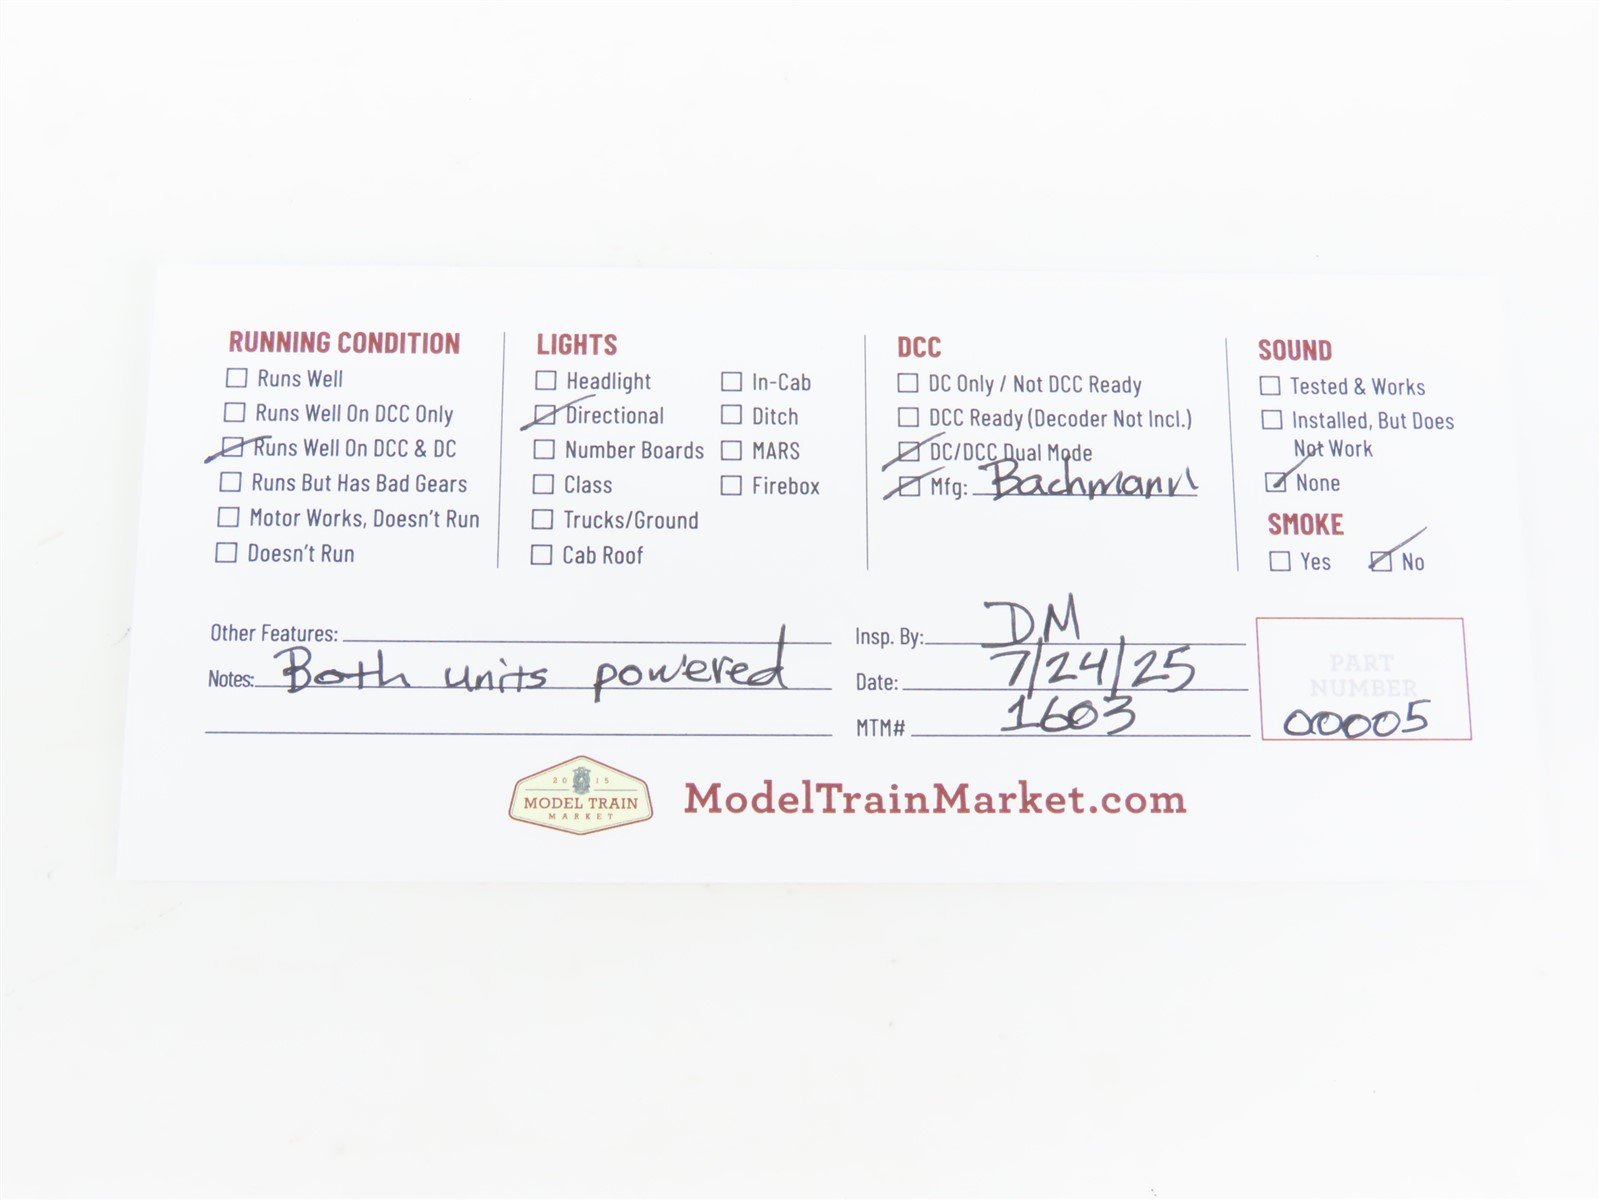 RUNNING CONDITION
Runs Well
Runs Well On DCC Only
Runs Well On DCC & DC
Runs But Has Bad Gears
Motor Works, Doesn't Run
Doesn't Run
LIGHTS
Headlight
Directional
Number Boards
Class
Trucks/Ground
Cab Roof
In-Cab
Ditch
MARS
Firebox
DCC
DC Only / Not DCC Ready
DCC Ready (Decoder Not Incl.)
DC/DCC Dual Mode
Mfg: Bachmann
SOUND
Tested & Works
Installed, But Does
Not Work
None
SMOKE
Yes No
Other Features:
Notes: Both units powered
Insp. By: DM
Date: 7/24/25
MTM# 1603
PART
NUMBER
00005
2015
MODEL TRAIN
MARKET
ModelTrainMarket.com